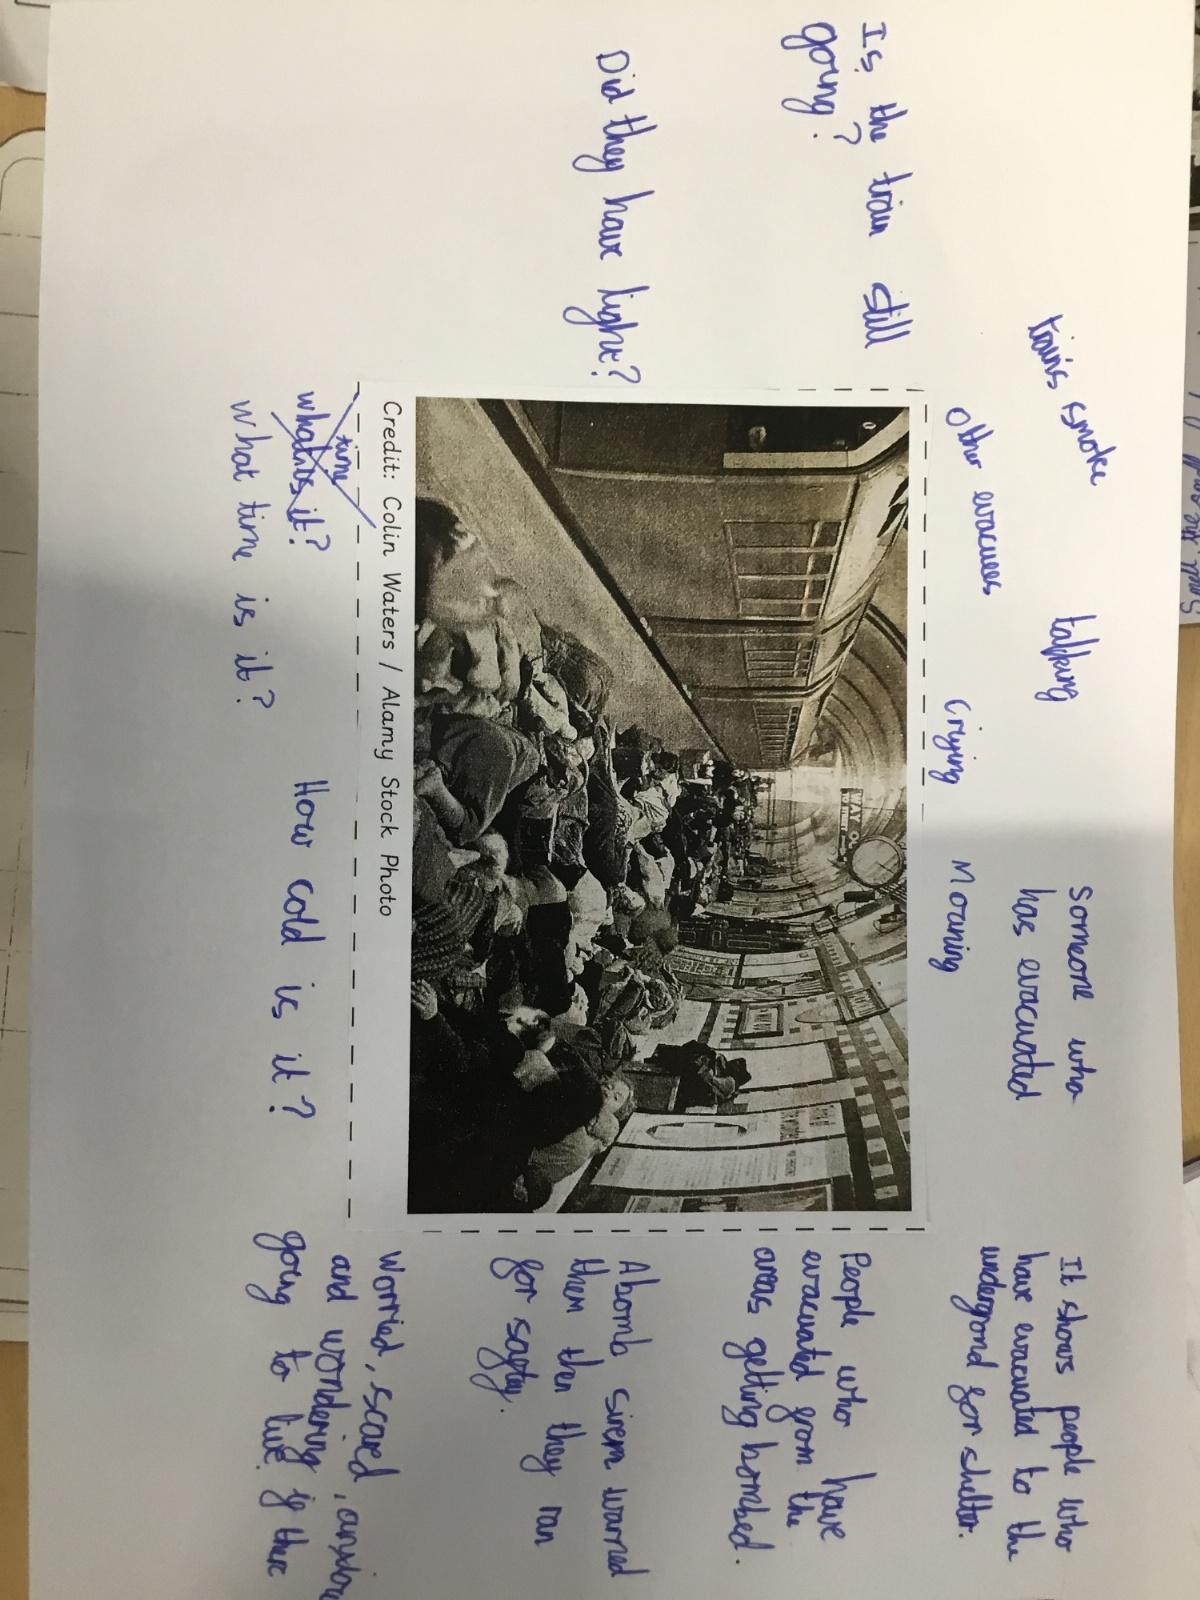 It shows people who
have evacuated to the
undergrond for shelter.
People who have
evacuated from the
areas getting bombed.
A bomb siren warned
them then they ran
for safty.
Worried, scared, anxious
and wondering if there
going to live
Someone who
has evacuated
trains smoke
talking
other evacuees
criying
Moaning
Is the train still
going?
Did they have light?
WAY OUT
Credit: Colin Waters / Alamy Stock Photo
time
what is it?
what time is it?
How cold is it?